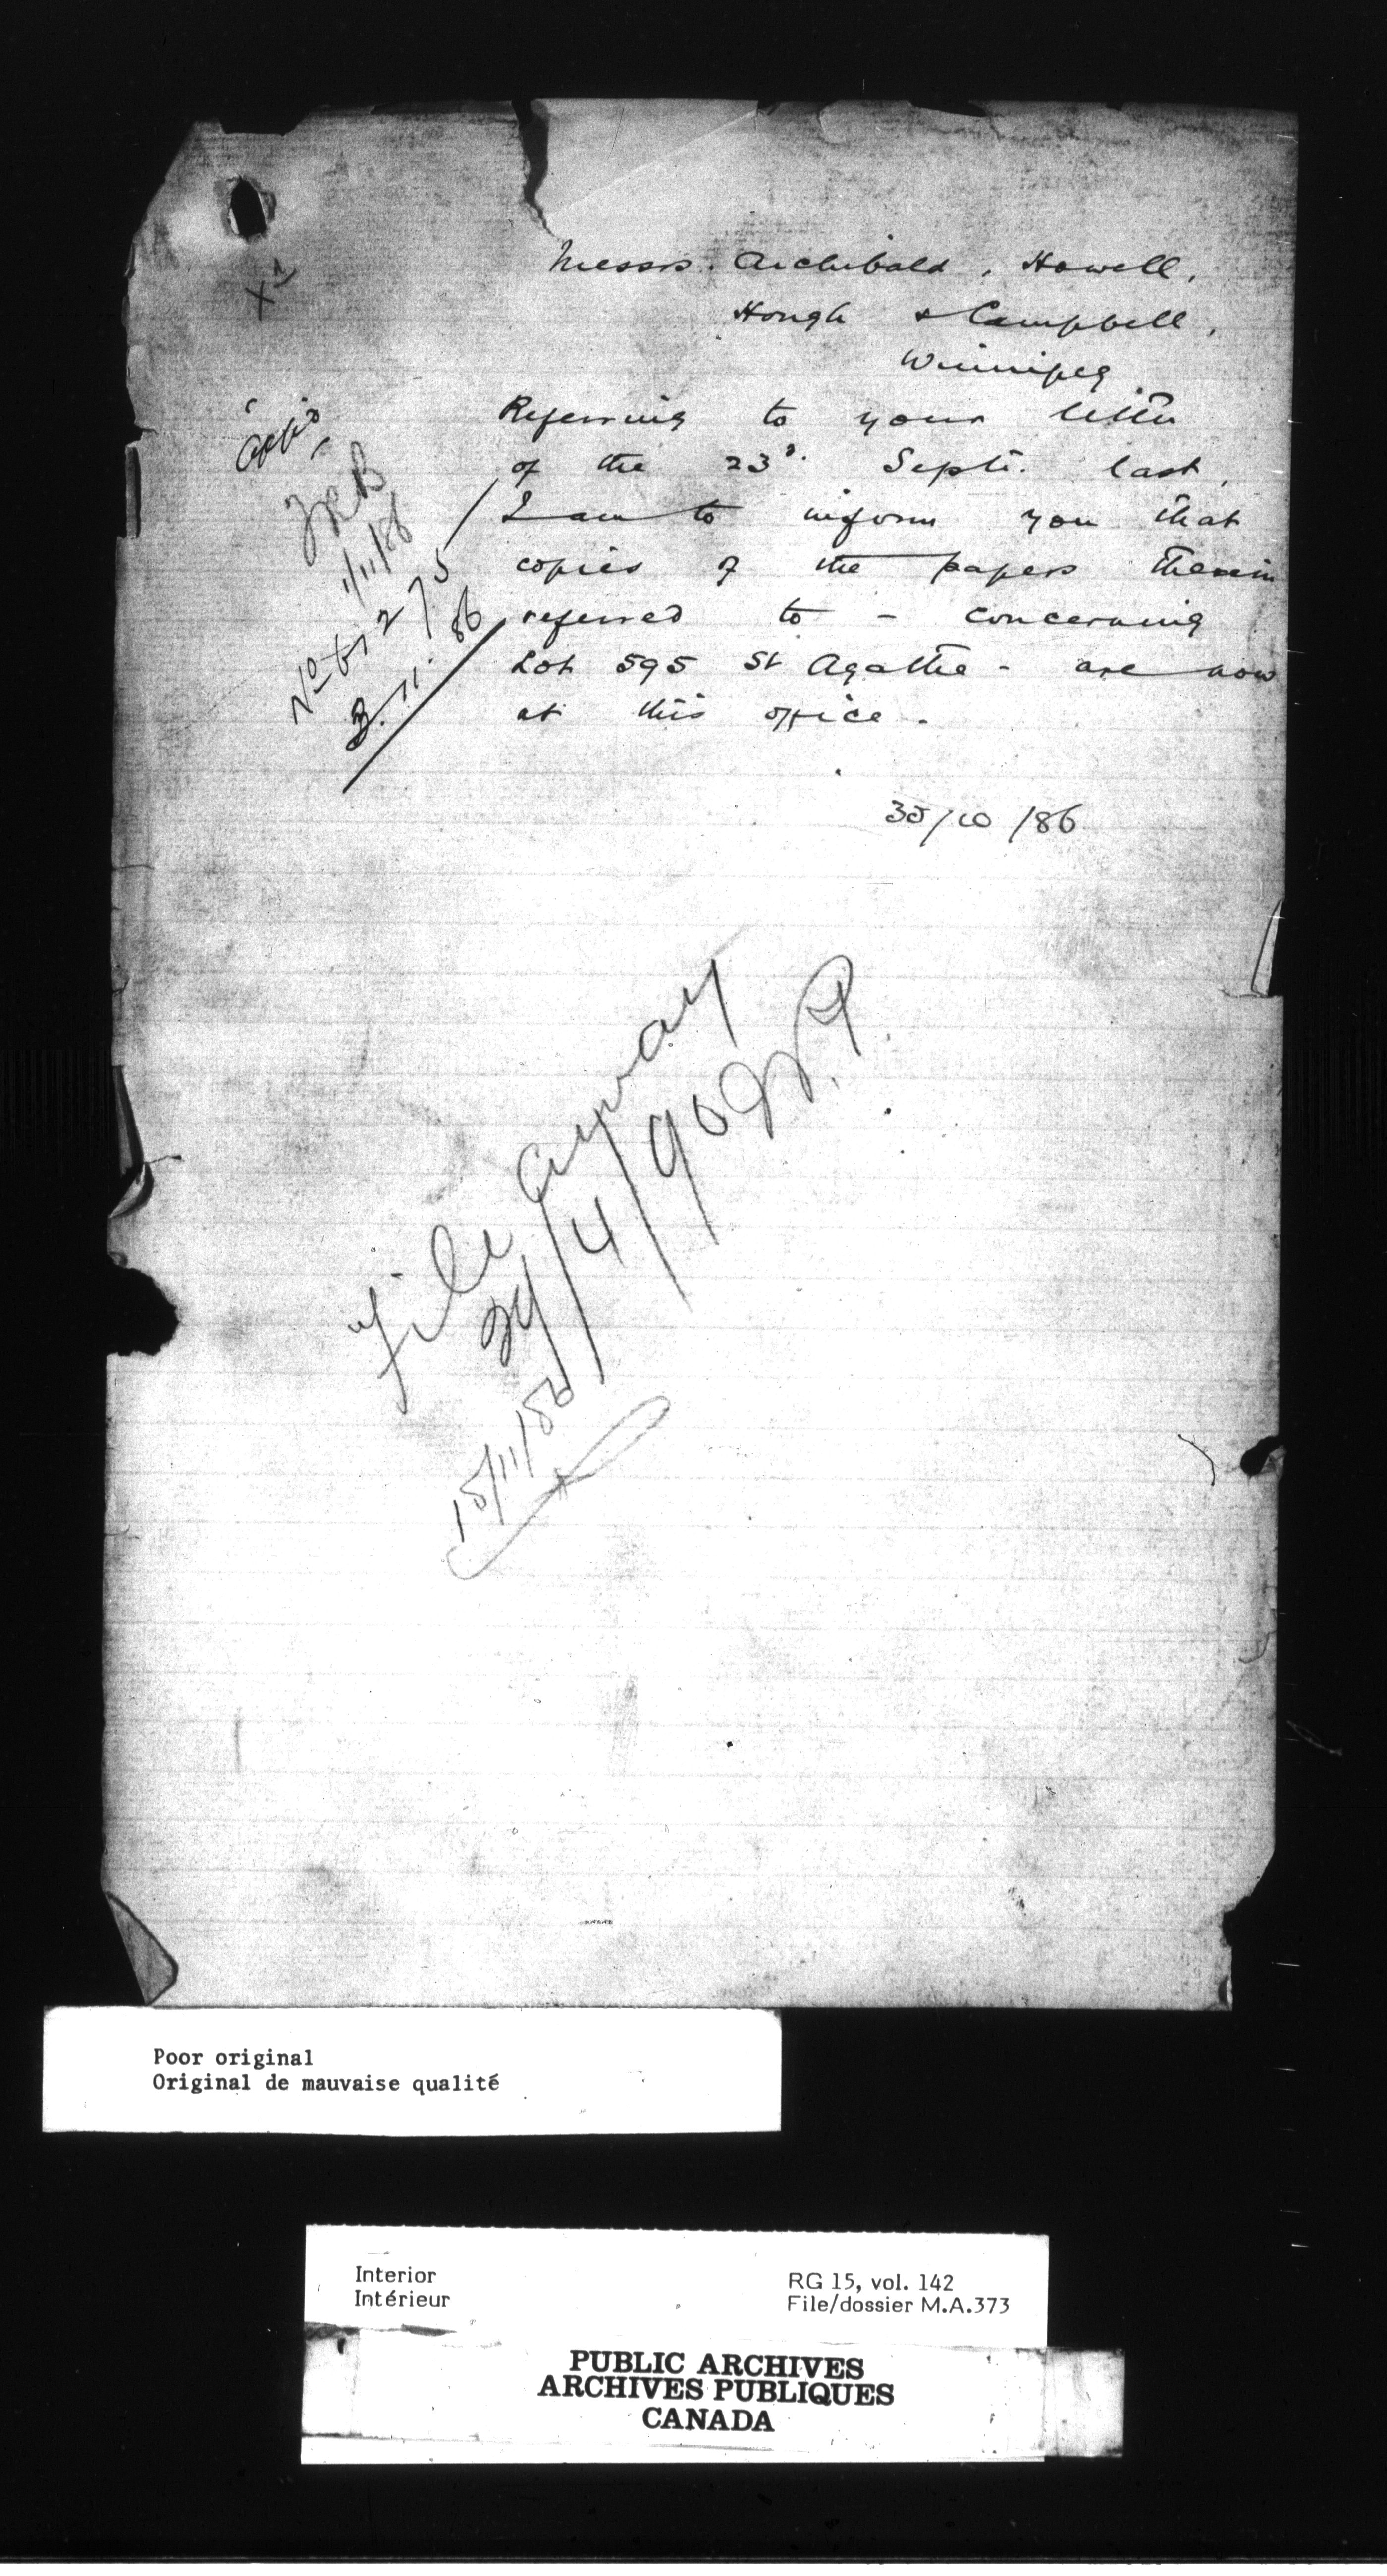 Messrs. Archibald, Howell,
Hough & Campbell,
Winnipeg
Referring to your letter
of the 23d. Sept. last,
I am to inform you that
copies of the papers therein
referred to - concerning
Lot 595 St Agathe - are now
at this office.
30/10/86
1/11/86
3.11.86
File away
29/4/90
15/11/86
Poor original
Original de mauvaise qualité
Interior
Intérieur
RG 15, vol. 142
File/dossier M.A.373
PUBLIC ARCHIVES
ARCHIVES PUBLIQUES
CANADA